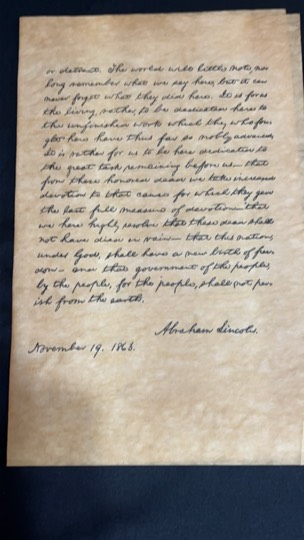 or detract. The world will little note, nor
long remember what we say here, but it can
never forget what they did here. It is for us
the living, rather, to be dedicated here to
the unfinished work which they who fou-
ght here have thus far so nobly advanced.
It is rather for us to be here dedicated to
the great task remaining before us— that
from these honored dead we take increased
devotion to that cause for which they gave
the last full measure of devotion— that
we here highly resolve that these dead shall
not have died in vain— that this nation,
under God, shall have a new birth of free-
dom— and that government of the people,
by the people, for the people, shall not per-
ish from the earth.
Abraham Lincoln.
November 19. 1863.